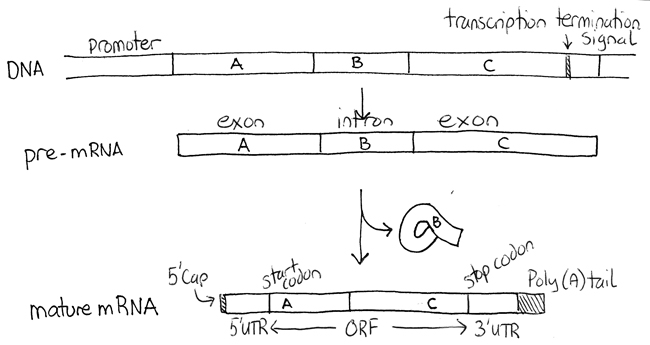 transcription termination
signal
promoter
DNA
A
B
C
exon
intron
exon
pre-mRNA
A
B
C
B
5'Cap
start
codon
stop codon
Poly(A) tail
mature mRNA
A
C
5'UTR
ORF
3'UTR